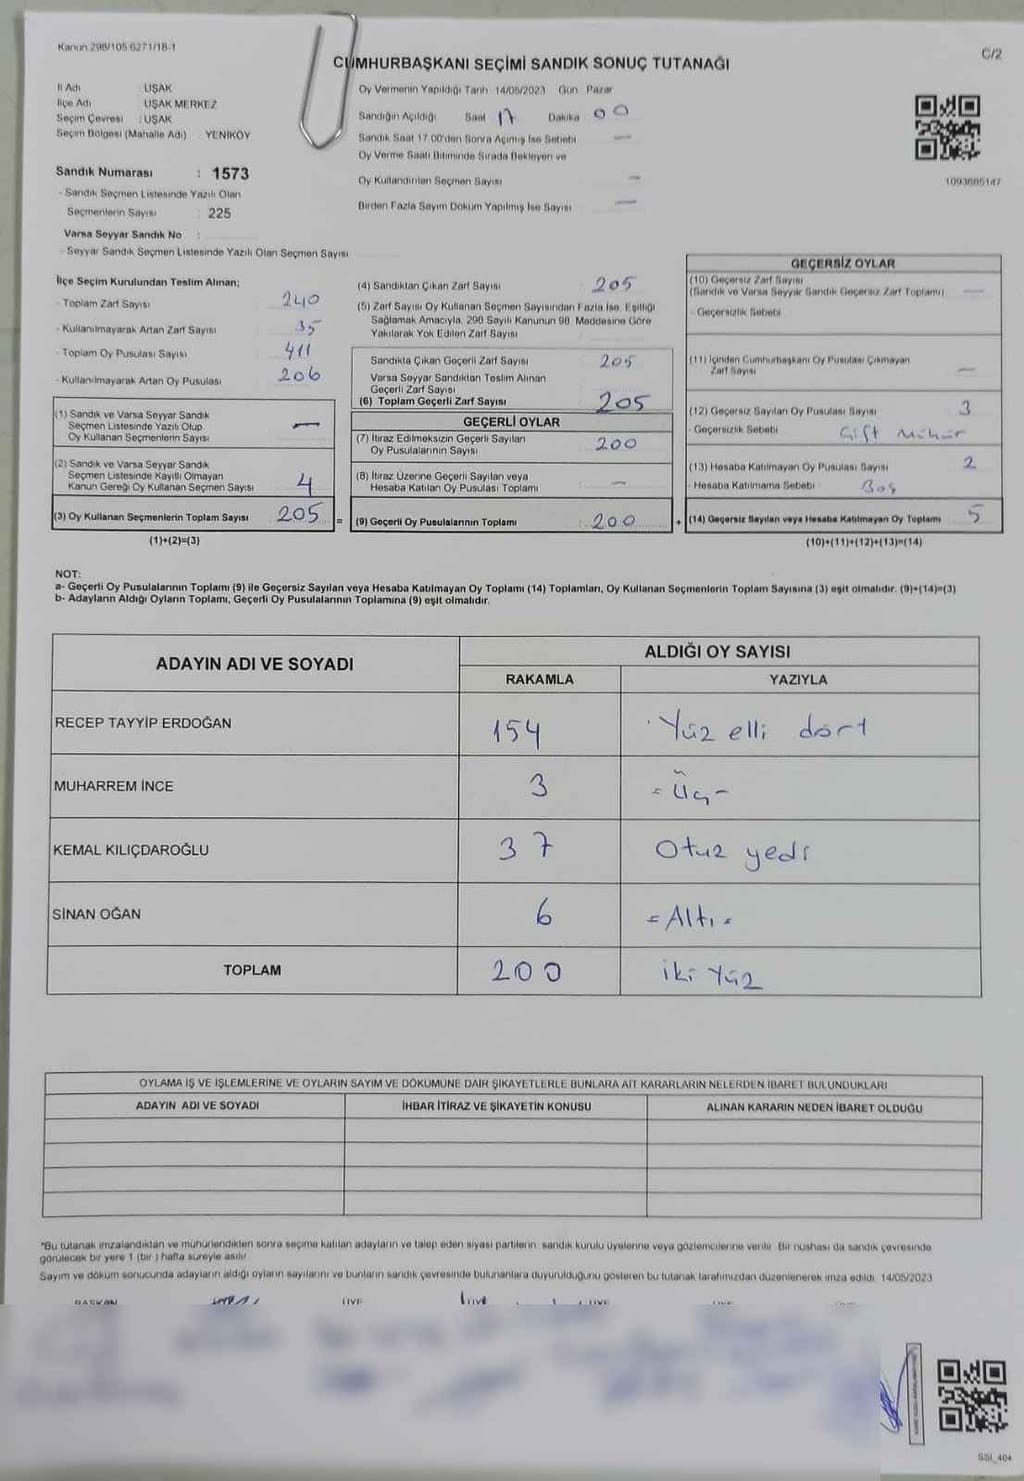 Kanun 298/105 6271/18-1
C/2
CUMHURBAŞKANI SEÇİMİ SANDIK SONUÇ TUTANAĞI
İl Adı : UŞAK
İlçe Adı : UŞAK MERKEZ
Seçim Çevresi : UŞAK
Seçim Bölgesi (Mahalle Adı) : YENİKÖY
Oy Vermenin Yapıldığı Tarih 14/05/2023 Gün Pazar
Sandığın Açıldığı Saat 17 Dakika 00
Sandık Saat 17.00'den Sonra Açılmış İse Sebebi —
Oy Verme Saati Bitiminde Sırada Bekleyen ve
Oy Kullandırılan Seçmen Sayısı —
Birden Fazla Sayım Döküm Yapılmış İse Sayısı —
1093605147
Sandık Numarası : 1573
- Sandık Seçmen Listesinde Yazılı Olan
Seçmenlerin Sayısı : 225
Varsa Seyyar Sandık No :
- Seyyar Sandık Seçmen Listesinde Yazılı Olan Seçmen Sayısı
İlçe Seçim Kurulundan Teslim Alınan;
- Toplam Zarf Sayısı 240
- Kullanılmayarak Artan Zarf Sayısı 35
- Toplam Oy Pusulası Sayısı 411
- Kullanılmayarak Artan Oy Pusulası 206
(1) Sandık ve Varsa Seyyar Sandık
Seçmen Listesinde Yazılı Olup
Oy Kullanan Seçmenlerin Sayısı —
(2) Sandık ve Varsa Seyyar Sandık
Seçmen Listesinde Kayıtlı Olmayan
Kanun Gereği Oy Kullanan Seçmen Sayısı 4
(3) Oy Kullanan Seçmenlerin Toplam Sayısı 205 =
(1)+(2)=(3)
(4) Sandıktan Çıkan Zarf Sayısı 205
(5) Zarf Sayısı Oy Kullanan Seçmen Sayısından Fazla İse Eşitliği
Sağlamak Amacıyla, 298 Sayılı Kanunun 98. Maddesine Göre
Yakılarak Yok Edilen Zarf Sayısı
Sandıkta Çıkan Geçerli Zarf Sayısı 205
Varsa Seyyar Sandıktan Teslim Alınan
Geçerli Zarf Sayısı
(6) Toplam Geçerli Zarf Sayısı 205
GEÇERLİ OYLAR
(7) İtiraz Edilmeksizin Geçerli Sayılan
Oy Pusulalarının Sayısı 200
(8) İtiraz Üzerine Geçerli Sayılan veya
Hesaba Katılan Oy Pusulası Toplamı —
(9) Geçerli Oy Pusulalarının Toplamı : 200 +
GEÇERSİZ OYLAR
(10) Geçersiz Zarf Sayısı
(Sandık ve Varsa Seyyar Sandık Geçersiz Zarf Toplamı) —
- Geçersizlik Sebebi
(11) İçinden Cumhurbaşkanı Oy Pusulası Çıkmayan
Zarf Sayısı —
(12) Geçersiz Sayılan Oy Pusulası Sayısı 3
- Geçersizlik Sebebi Çift Mühür
(13) Hesaba Katılmayan Oy Pusulası Sayısı 2
- Hesaba Katılmama Sebebi Boş
(14) Geçersiz Sayılan veya Hesaba Katılmayan Oy Toplamı 5
(10)+(11)+(12)+(13)=(14)
NOT:
a- Geçerli Oy Pusulalarının Toplamı (9) ile Geçersiz Sayılan veya Hesaba Katılmayan Oy Toplamı (14) Toplamları, Oy Kullanan Seçmenlerin Toplam Sayısına (3) eşit olmalıdır. (9)+(14)=(3)
b- Adayların Aldığı Oyların Toplamı, Geçerli Oy Pusulalarının Toplamına (9) eşit olmalıdır.
ADAYIN ADI VE SOYADI
ALDIĞI OY SAYISI
RAKAMLA YAZIYLA
RECEP TAYYİP ERDOĞAN 154 Yüz elli dört
MUHARREM İNCE 3 = Üç -
KEMAL KILIÇDAROĞLU 37 Otuz yedi
SİNAN OĞAN 6 = Altı =
TOPLAM 200 iki Yüz
OYLAMA İŞ VE İŞLEMLERİNE VE OYLARIN SAYIM VE DÖKÜMÜNE DAİR ŞİKAYETLERLE BUNLARA AİT KARARLARIN NELERDEN İBARET BULUNDUKLARI
ADAYIN ADI VE SOYADI İHBAR İTİRAZ VE ŞİKAYETİN KONUSU ALINAN KARARIN NEDEN İBARET OLDUĞU
*Bu tutanak imzalandıktan ve mühürlendikten sonra seçime katılan adayların ve talep eden siyasi partilerin sandık kurulu üyelerine veya gözlemcilerine verilir. Bir nüshası da sandık çevresinde
görülecek bir yere 1 (bir) hafta süreyle asılır.
Sayım ve döküm sonucunda adayların aldığı oyların sayılarını ve bunların sandık çevresinde bulunanlara duyurulduğunu gösteren bu tutanak tarafımızdan düzenlenerek imza edildi. 14/05/2023
BAŞKAN ÜYE ÜYE ÜYE
SSI_404